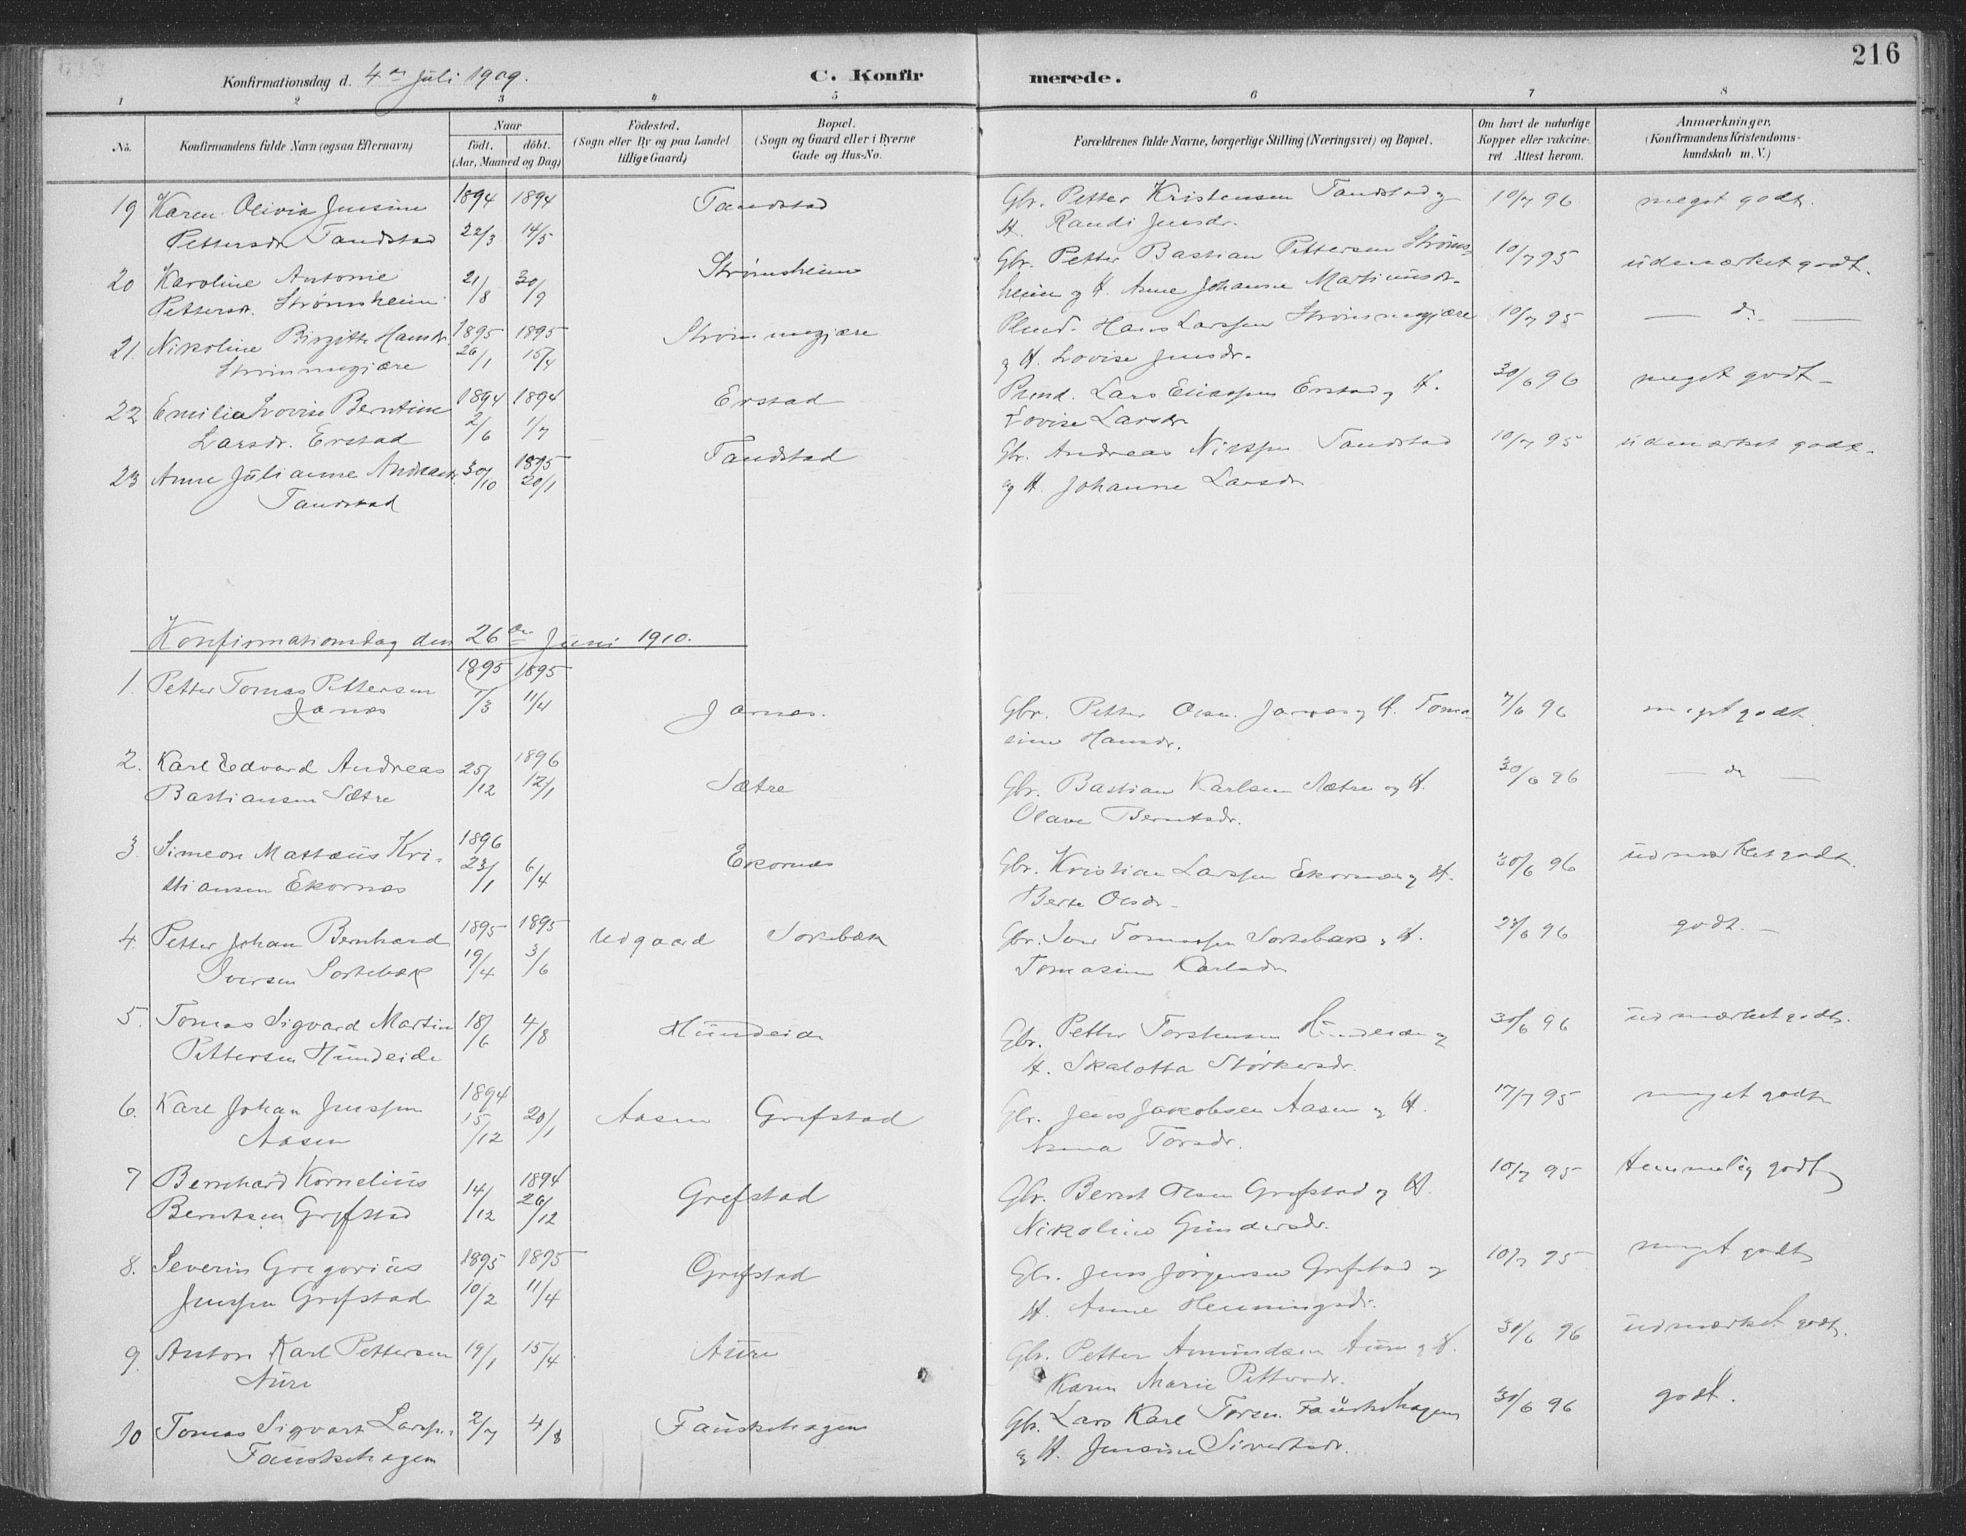 216
Konfirmationsdag d. 4de Juli 1909. C. Konfirmerede.
1 2 3 4 5 6 7 8
No. Konfirmandens fulde Navn (ogsaa Efternavn) Naar födt. döbt. (Aar, Maaned og Dag) Födested. (Sogn eller By og paa Landet tillige Gaard) Bopæl. (Sogn og Gaard eller i Byerne Gade og Hus-No. Forældrenes fulde Navne, borgerlige Stilling (Næringsvei) og Bopæl. Om havt de naturlige Kopper eller vakcineret Attest herom. Anmærkninger. (Konfirmandens Kristendomskundskab m. V.)
19 Karen Olivia Jensine 1894 1894 Tandstad Gbr. Petter Kristensen Tandstad og 10/7 96 meget godt.
Pettersdr Tandstad 22/3 14/5 H. Randi Jensdr.
20 Karoline Antonie 21/8 30/9 Strømsheim Gbr. Petter Bastian Pettersen Strøms- 10/7 95 udmærket godt.
Pettersdr. Strømsheim heim og H. Anne Johanne Martinusdr.
21 Nikoline Birgitte Hansdr. 1895 1895 Strømmegjære Hans Larssen Strømmegjære 10/7 95 — do —
Strømmegjære 26/1 15/4 og H. Lovise Jensdr.
22 Emilie Lovise Berntine 1894 1894 Erstad Lars Eliassen Erstad og H. 30/6 96 meget godt
Larsdr. Erstad 2/6 1/7 Lovise Larsdr
23 Anne Julianne Andreasdr. 30/10 1895 20/1 Tandstad Gbr. Andreas Nilssen Tandstad 10/7 95 udmærket godt.
Tandstad og H. Johanne Larsdr
Konfirmationsdag den 26de Juni 1910.
1. Petter Tomas Pettersen 1895 1895
Jarnes 7/3 11/4 Jarnes. Gbr. Petter Olsen Jarnes og H. Toma- 7/6 96 meget godt.
sine Hansdr.
2. Karl Edvard Andreas 25/12 1896 12/1 Sætre 30/6 96 — do —
Bastiansen Sætre Gbr. Bastian Karlsen Sætre og H.
Olave Berntsdr.
3. Simeon Mattæus Kri- 1896 23/1 6/4 Ekornes Gbr. Kristian Larssen Ekornes og H. 30/6 96 udmærket godt.
stiansen Ekornes Berte Olsdr
4. Petter Johan Bernhard 1895 1895 Udgaard Sortebæk Gbr. Iver Tomassen Sortebæk og H. 96 godt.
Iversen Sortebæk 19/4 3/6 Tomasine Karlsdr
5. Tomas Sigvard Martin 18/6 4/8 Hundeide Gbr. Petter Torstensen Hundeide og 30/6 96 udmærket godt.
Pettersen Hundeide H. Skalotta Størkersdr.
6. Karl Johan Jenssen 1894 15/12 20/1 Aasen Grefstad Gbr. Jens Jakobsen Aasen og H. 17/7 95 meget godt
Aasen Anna Torsdr.
7 Bernhard Kornelius 14/12 1894 26/12 Grefstad Gbr. Bernt Olsen Grefstad og H. 10/7 95 temmelig godt
Berntsen Grefstad Nikoline Gundersdr.
8. Severin Gregorius 1895 1895 Grefstad Gbr. Jens Jørgensen Grefstad og 10/7 95 meget godt
Jenssen Grefstad 10/2 11/4 H. Anne Henningsdr.
9. Anton Karl Pettersen 19/1 15/4 Aure Gbr. Petter Amundsen Aure og H. 30/6 96 udmærket godt.
Aure Karen Marie Pettersdr.
10 Tomas Sigvart Larssen 2/7 4/8 Fauskehagen Gbr. Lars Karl Torsen Fauskehagen 30/6 96 godt.
Fauskehagen og H. Jensine Sivertsdr.